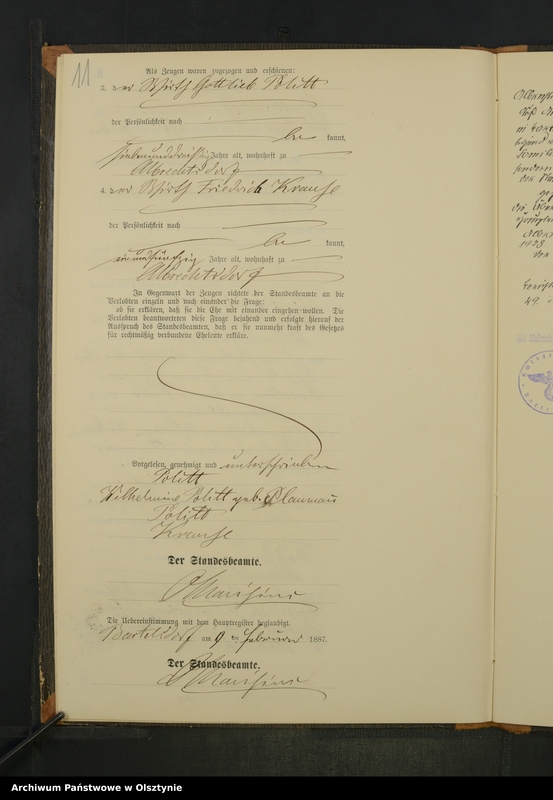 11
Als Zeugen waren zugezogen und erschienen:
3. der Wirth Gottlieb Politt
der Persönlichkeit nach
be kannt,
siebenunddreißig Jahre alt, wohnhaft zu
Albrechtsdorf
4. der Wirth Friedrich Krause
der Persönlichkeit nach
be kannt,
Jahre alt, wohnhaft zu
Albrechtsdorf
In Gegenwart der Zeugen richtete der Standesbeamte an die
Verlobten einzeln und nach einander die Frage:
ob sie erklären, daß sie die Ehe mit einander eingehen wollen. Die
Verlobten beantworteten diese Frage bejahend und erfolgte hierauf der
Ausspruch des Standesbeamten, daß er sie nunmehr kraft des Gesetzes
für rechtmäßig verbundene Eheleute erkläre.
Vorgelesen, genehmigt und unterschrieben
Politt
Wilhelmine Politt geb.
Politt
Krause
Der Standesbeamte.
Die Uebereinstimmung mit dem Hauptregister beglaubigt.
Bartelsdorf am 9 ten Februar 1887.
Der Standesbeamte.
Archiwum Państwowe w Olsztynie